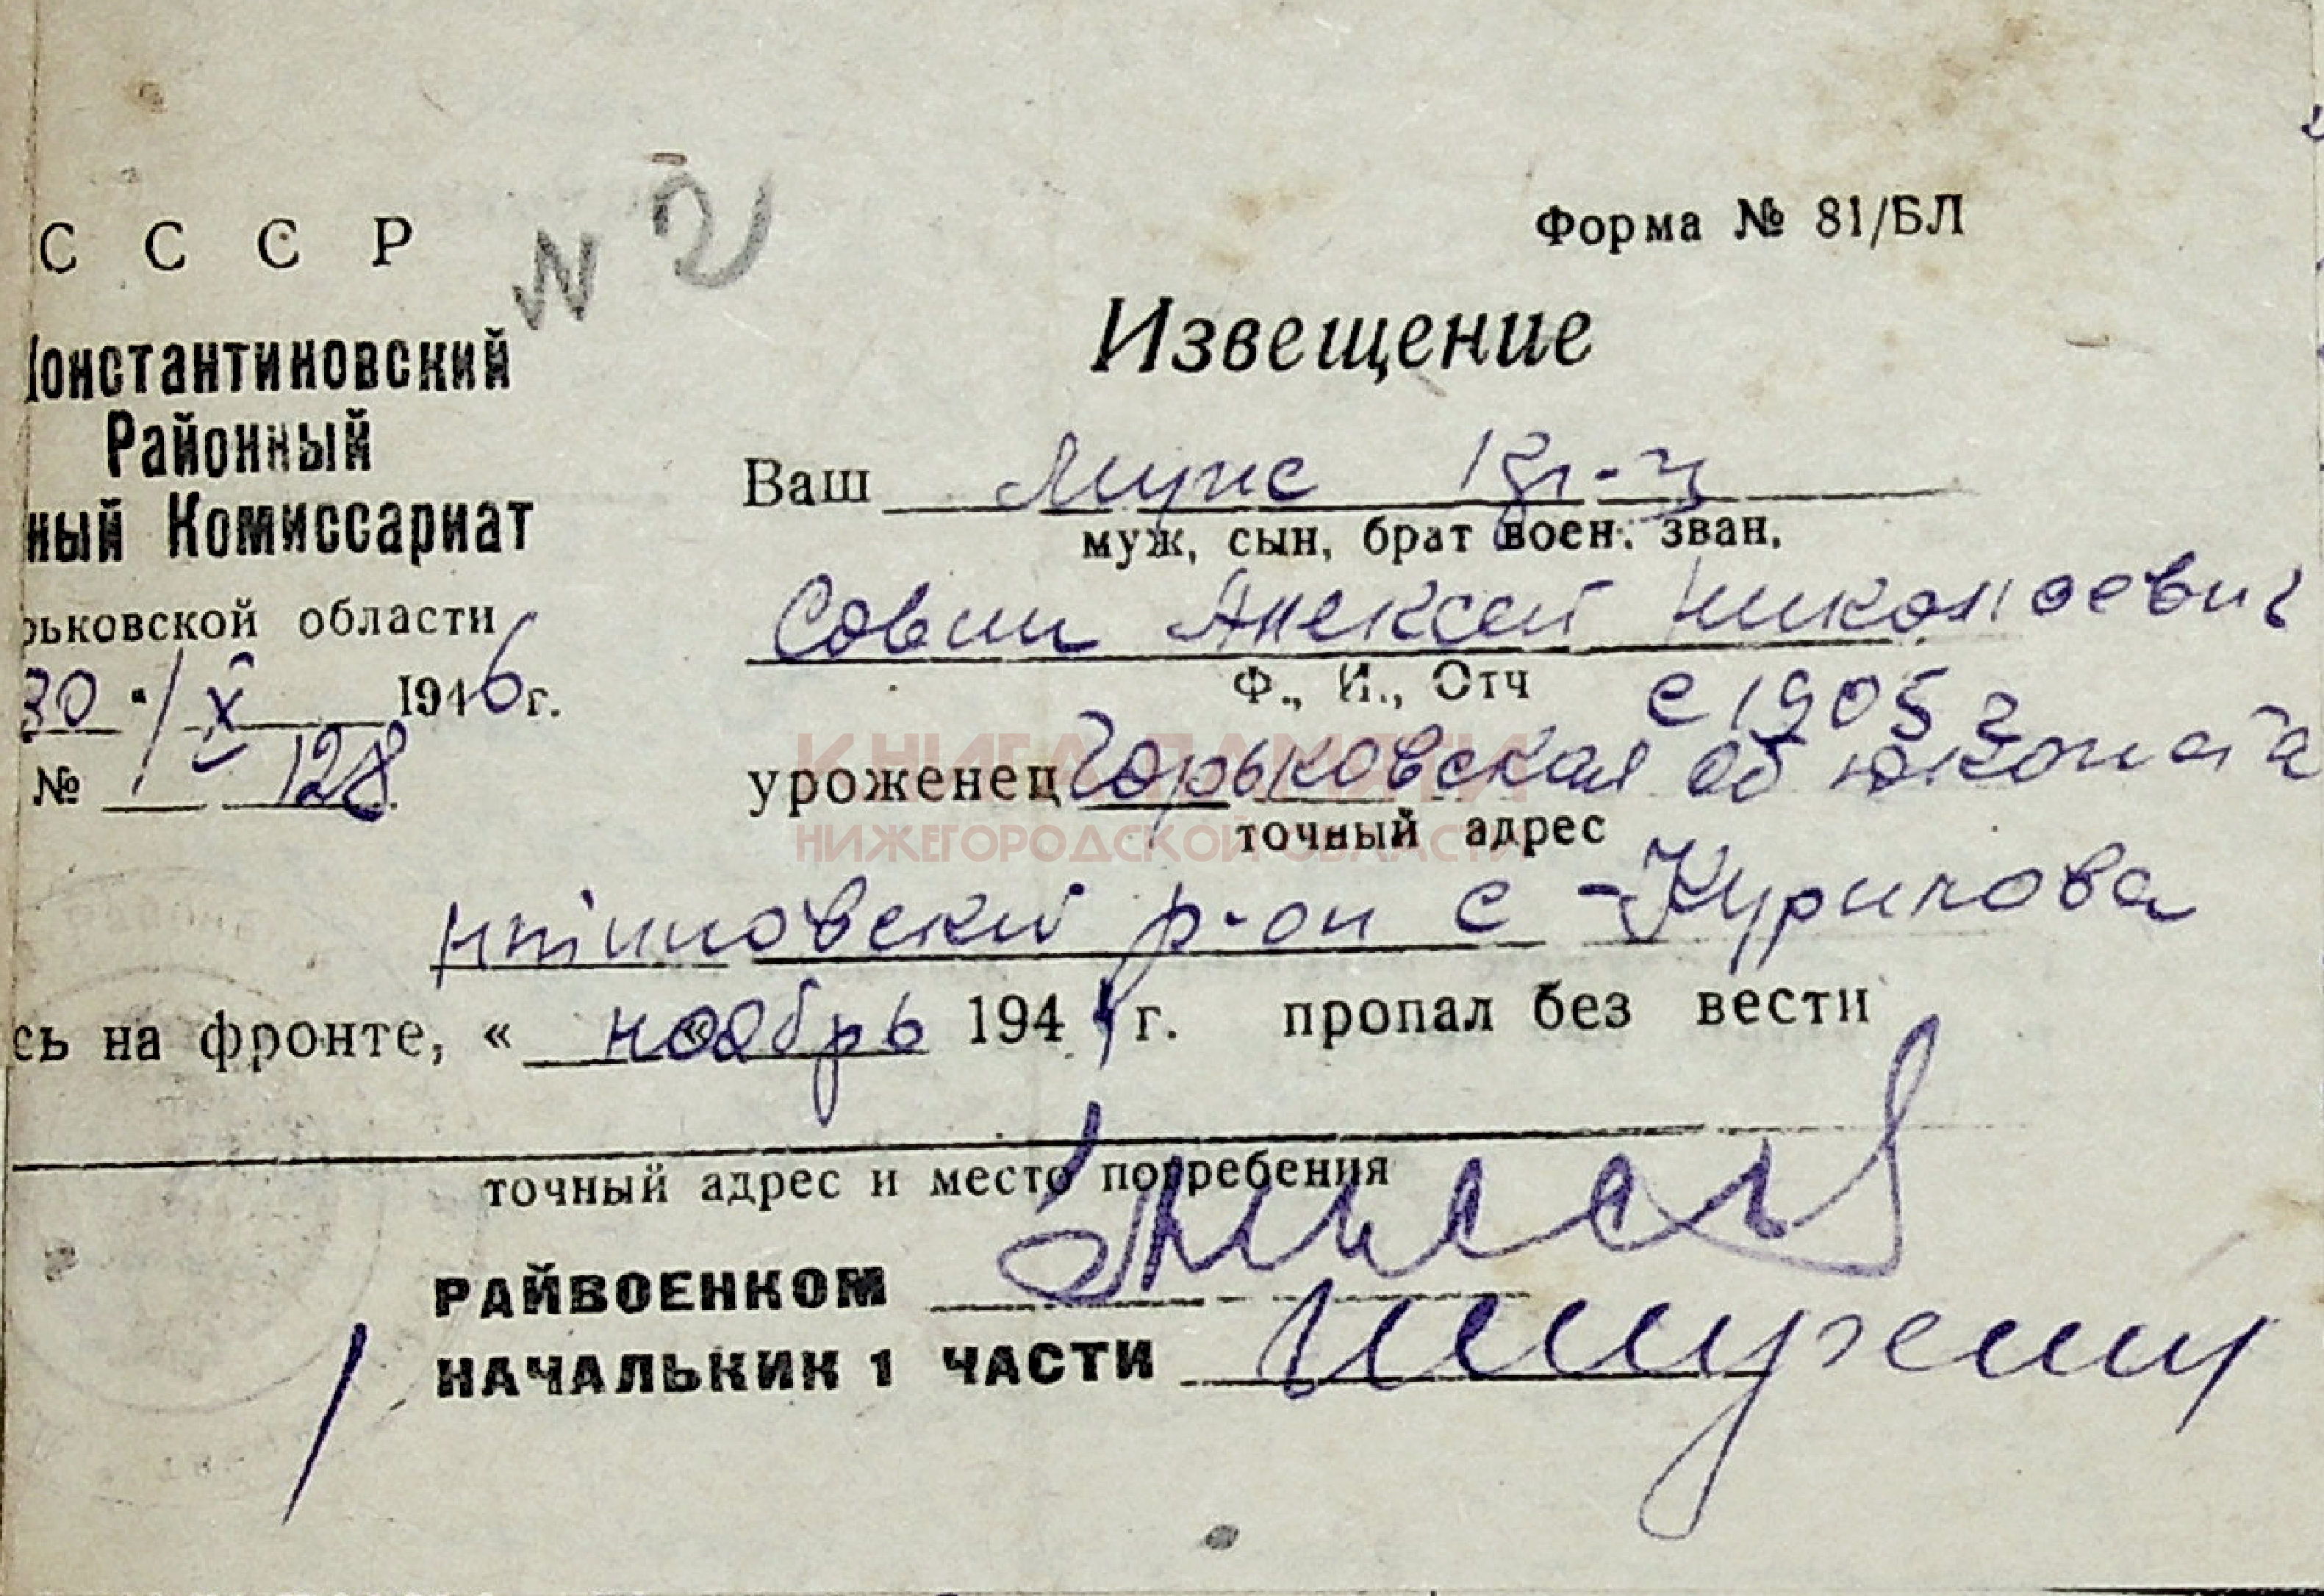 С С С Р
N 2
Форма № 81/БЛ
Константиновский
Извещение
Районный
ный Комиссариат
Ваш муж кр-ц
муж, сын, брат воен. зван.
рьковской области
Совин Алексей Николаевич
30 " / X 1946 г.
Ф., И., Отч с 1905 г
№ 1/128
уроженец Горьковская об ю конста
точный адрес
КНИГА ПАМЯТИ
НИЖЕГОРОДСКОЙ ОБЛАСТИ
нтиновский р-он с Курилова
сь на фронте, « ноябрь 1944 г. пропал без вести
точный адрес и место погребения
РАЙВОЕНКОМ
НАЧАЛЬКИК 1 ЧАСТИ